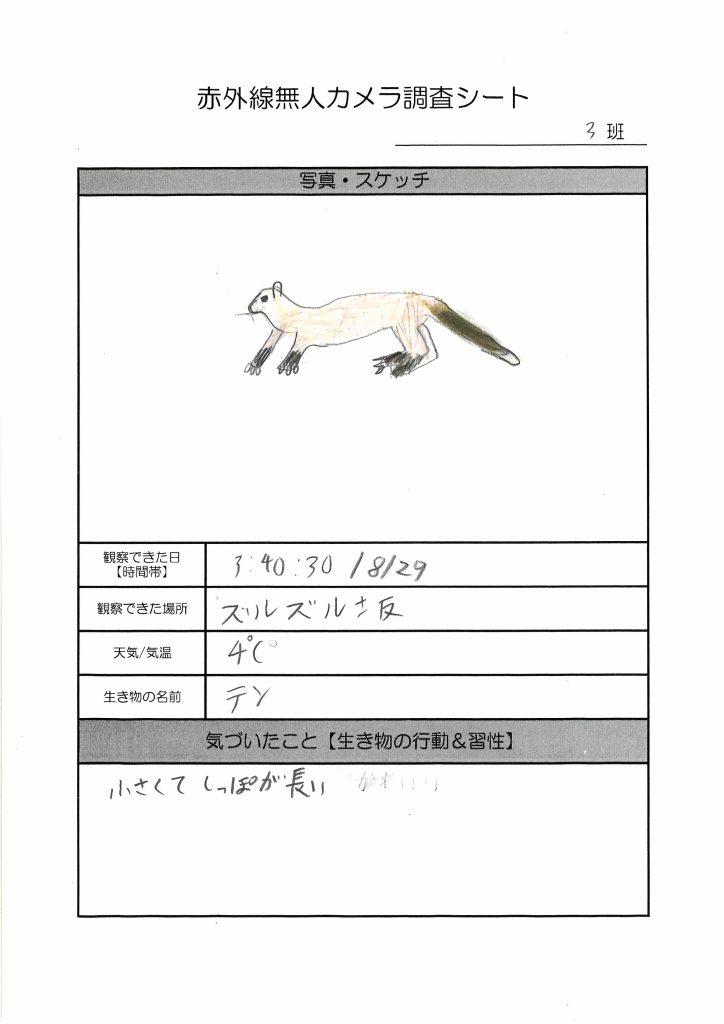 赤外線無人カメラ調査シート
3 班
写真・スケッチ
観察できた日
【時間帯】
3:40:30 /8/29
観察できた場所
ズルズル坂
天気/気温
4℃
生き物の名前
テン
気づいたこと【生き物の行動&習性】
小さくてしっぽが長い